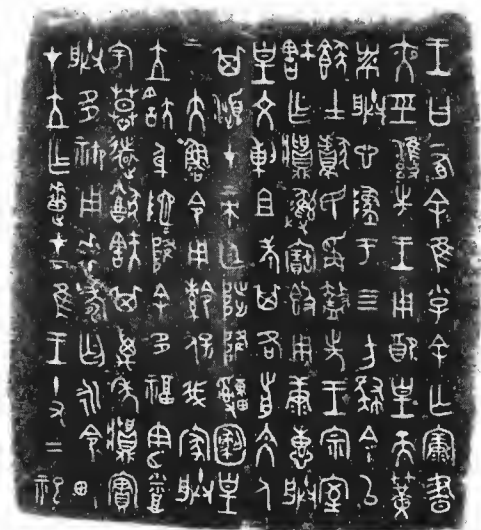 王曰有余隹小子余亡康晝
夜巠雝先王用配皇天簧
黹朕心墜于四方肆余以
餕士獻民爯盩先王宗室
㝬乍䵼彝寶簋用康惠朕
皇文剌且考其各前文人
其瀕才帝廷陟降申皇
帝大魯令用保我家朕
立㝬身阤阤降余多福憲烝
宇慕遠猷㝬其萬年䵼實
朕多禦用壽匄永令畯
才立乍疐才下隹王十又二祀